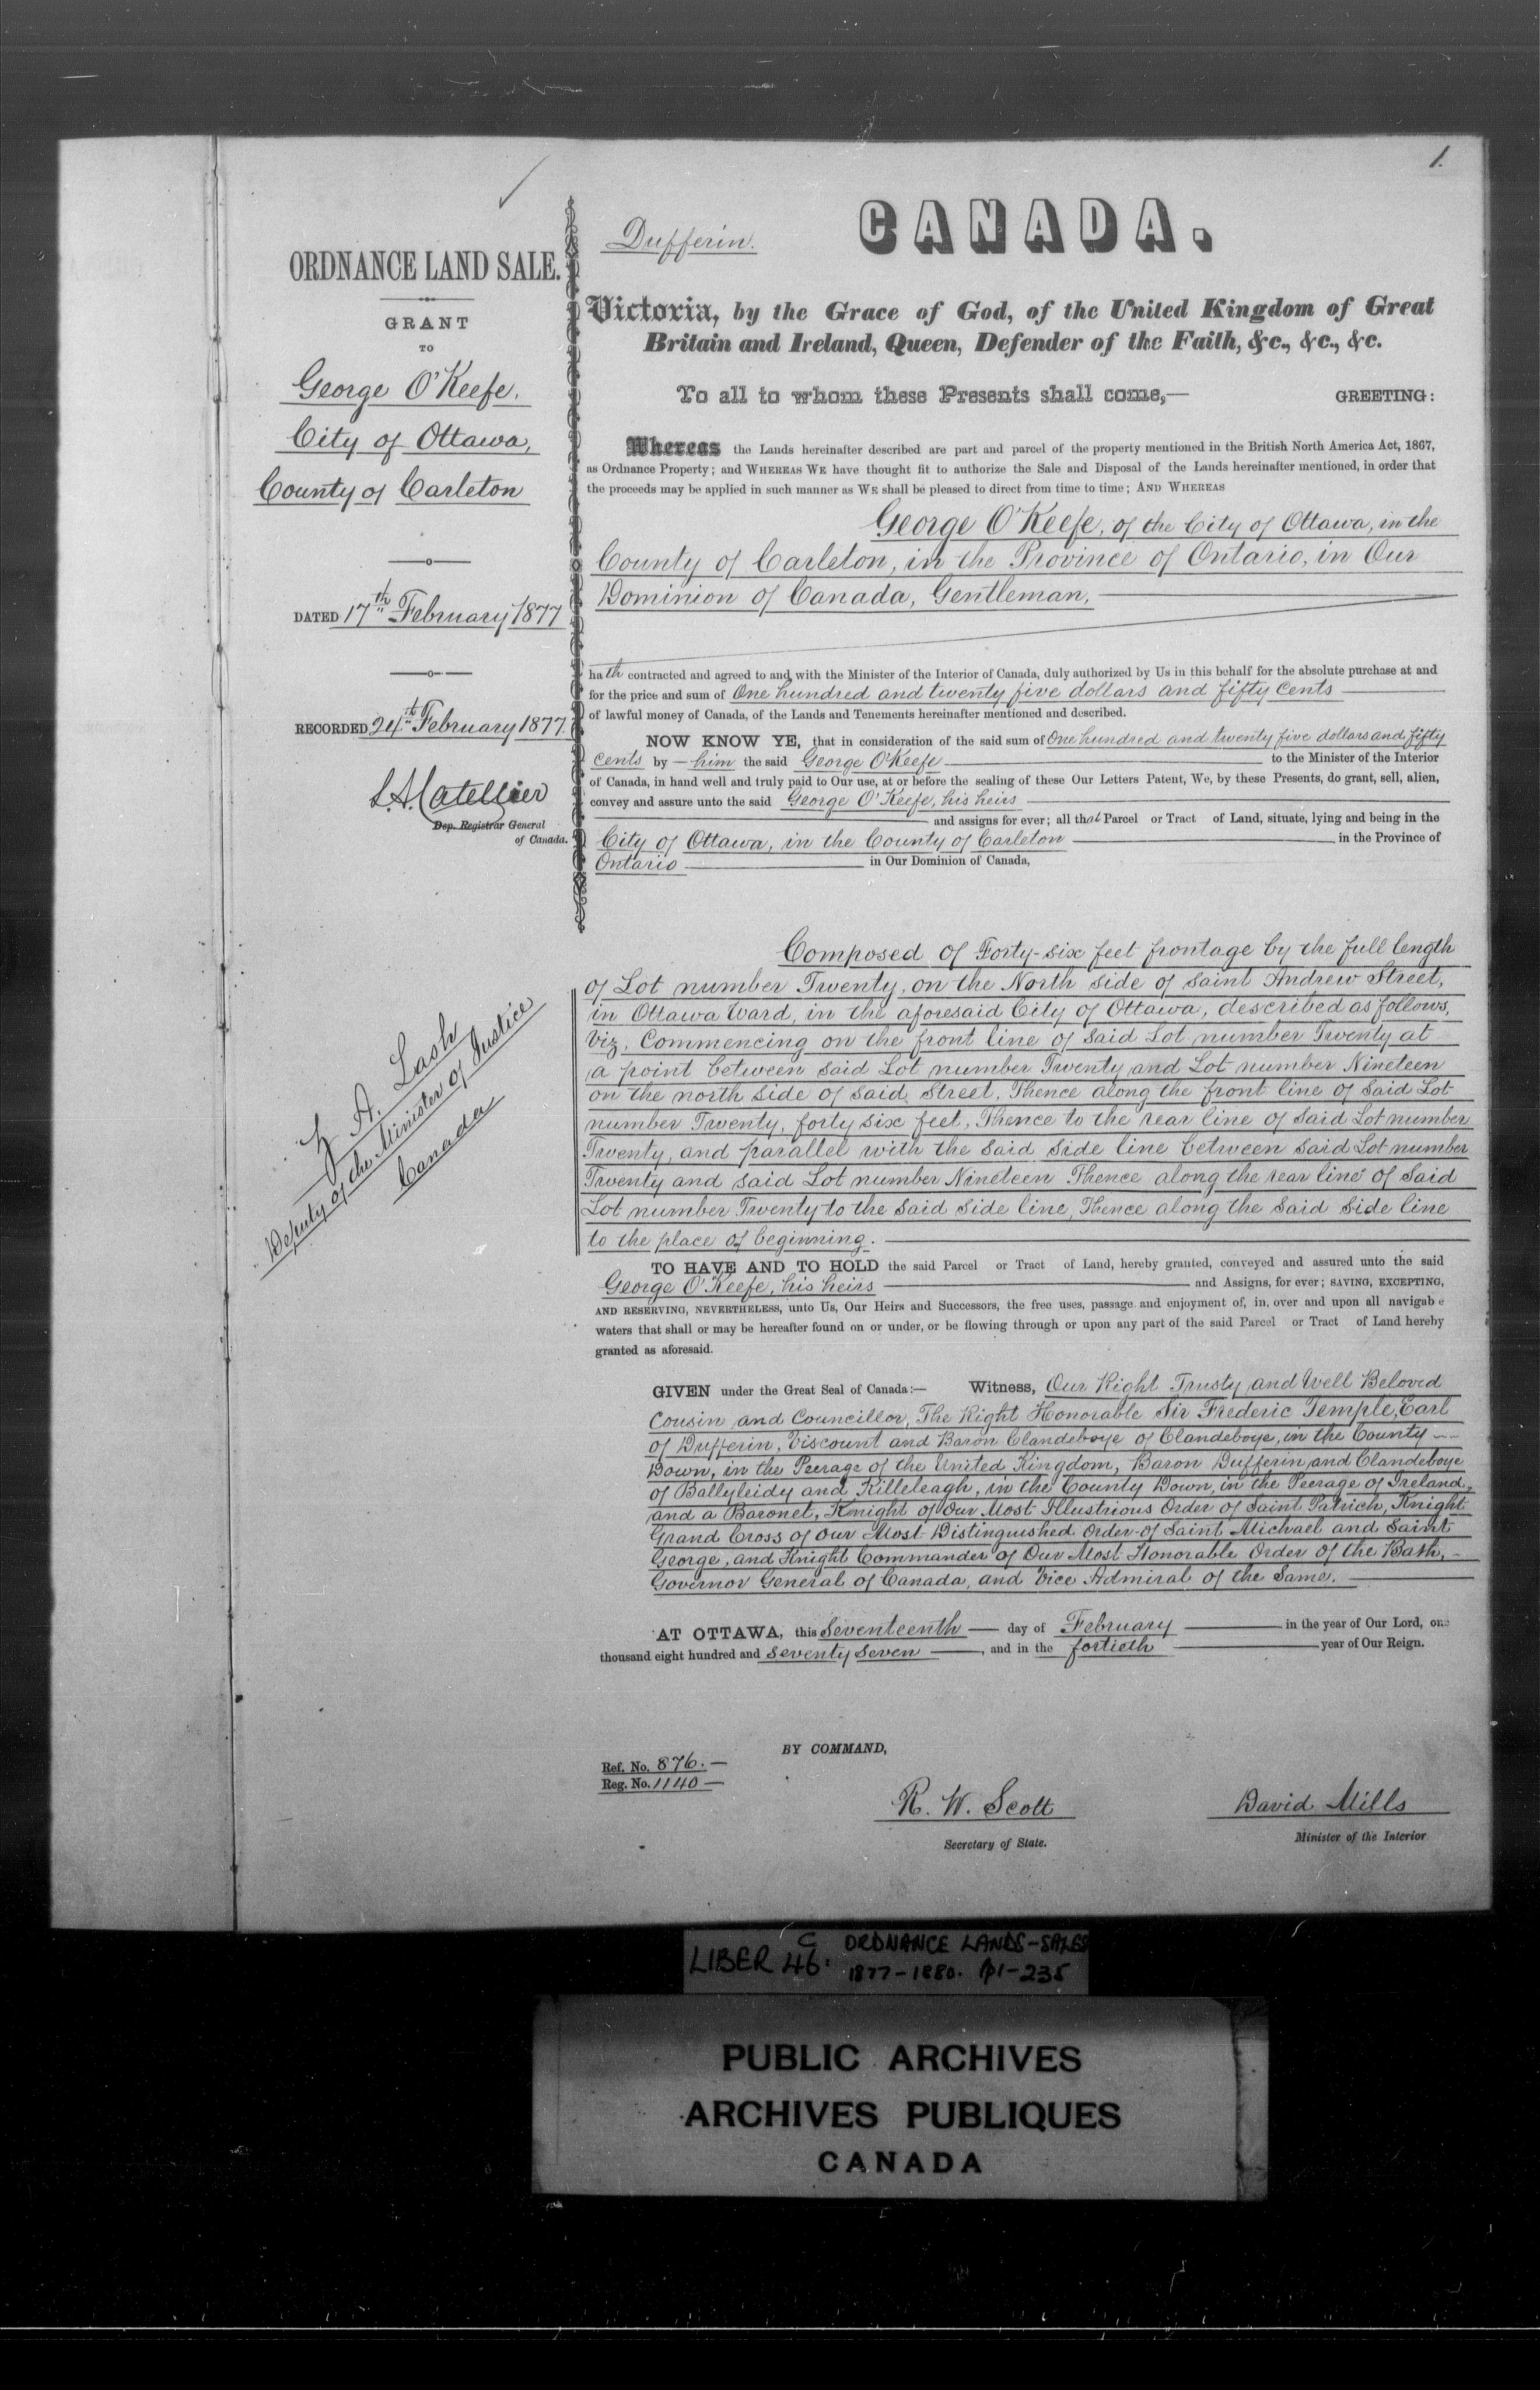 1.
ORDNANCE LAND SALE.
GRANT
TO
George O'Keefe.
City of Ottawa,
County of Carleton
DATED 17th February 1877
RECORDED 24th February 1877.
L.A. Catellier
Dep. Registrar General
of Canada.
Z A. Lash
Deputy of the Minister of Justice
Canada
Dufferin.
CANADA.
Victoria, by the Grace of God, of the United Kingdom of Great
Britain and Ireland, Queen, Defender of the Faith, &c., &c., &c.
To all to whom these Presents shall come,— GREETING:
Whereas the Lands hereinafter described are part and parcel of the property mentioned in the British North America Act, 1867,
as Ordnance Property; and WHEREAS WE have thought fit to authorize the Sale and Disposal of the Lands hereinafter mentioned, in order that
the proceeds may be applied in such manner as WE shall be pleased to direct from time to time; AND WHEREAS
George O'Keefe, of the City of Ottawa, in the
County of Carleton, in the Province of Ontario, in Our
Dominion of Canada, Gentleman,
hath contracted and agreed to and with the Minister of the Interior of Canada, duly authorized by Us in this behalf for the absolute purchase at and
for the price and sum of One hundred and twenty five dollars and fifty cents
of lawful money of Canada, of the Lands and Tenements hereinafter mentioned and described.
NOW KNOW YE, that in consideration of the said sum of One hundred and twenty five dollars and fifty
cents by — him the said George O'Keefe to the Minister of the Interior
of Canada, in hand well and truly paid to Our use, at or before the sealing of these Our Letters Patent, We, by these Presents, do grant, sell, alien,
convey and assure unto the said George O'Keefe, his heirs
and assigns for ever; all that Parcel or Tract of Land, situate, lying and being in the
City of Ottawa, in the County of Carleton in the Province of
Ontario in Our Dominion of Canada,
Composed of Forty-six feet frontage by the full length
of Lot number Twenty, on the North side of Saint Andrew Street,
in Ottawa Ward, in the aforesaid City of Ottawa, described as follows,
viz, Commencing on the front line of said Lot number Twenty at
a point between said Lot number Twenty and Lot number Nineteen
on the north side of said Street, Thence along the front line of said Lot
number Twenty, forty six feet, Thence to the rear line of said Lot number
Twenty, and parallel with the said side line between said Lot number
Twenty and said Lot number Nineteen Thence along the rear line of said
Lot number Twenty to the said side line, Thence along the said side line
to the place of beginning.
TO HAVE AND TO HOLD the said Parcel or Tract of Land, hereby granted, conveyed and assured unto the said
George O'Keefe, his heirs and Assigns, for ever; SAVING, EXCEPTING,
AND RESERVING, NEVERTHELESS, unto Us, Our Heirs and Successors, the free uses, passage and enjoyment of, in, over and upon all navigab e
waters that shall or may be hereafter found on or under, or be flowing through or upon any part of the said Parcel or Tract of Land hereby
granted as aforesaid.
GIVEN under the Great Seal of Canada:— Witness, Our Right Trusty and Well Beloved
Cousin and Councillor, The Right Honorable Sir Frederic Temple, Earl
of Dufferin, Viscount and Baron Clandeboye of Clandeboye, in the County
Down, in the Peerage of the United Kingdom, Baron Dufferin and Clandeboye
of Ballyleidy and Killeleagh, in the County Down, in the Peerage of Ireland,
and a Baronet, Knight of Our Most Illustrious Order of Saint Patrick, Knight
Grand Cross of Our Most Distinguished Order of Saint Michael and Saint
George, and Knight Commander of Our Most Honorable Order of the Bath,
Governor General of Canada, and Vice Admiral of the Same.
AT OTTAWA, this Seventeenth day of February in the year of Our Lord, one
thousand eight hundred and seventy seven, and in the fortieth year of Our Reign.
BY COMMAND,
Ref. No. 876.—
Reg. No. 1140—
R. W. Scott
Secretary of State.
David Mills
Minister of the Interior
LIBER 46. C ORDNANCE LANDS-SALES
1877-1880. p1-235
PUBLIC ARCHIVES
ARCHIVES PUBLIQUES
CANADA